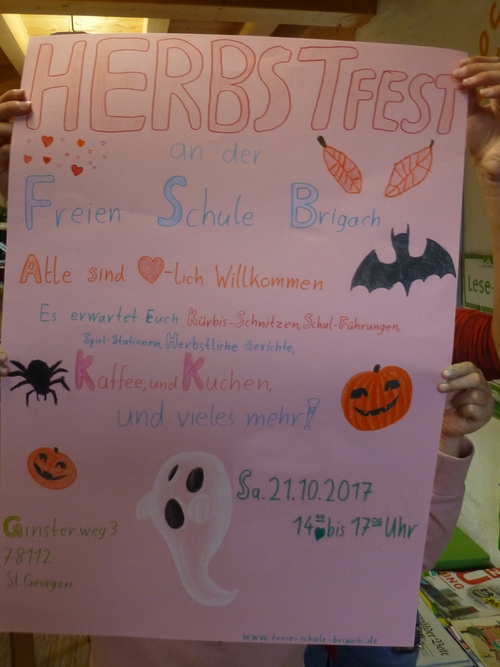 HERBSTFEST
an der
Freien Schule Brigach
Alle sind ♥-lich Willkommen
Es erwartet Euch Kürbis-Schnitzen, Schul-Führungen,
Spiel-Stationen, Herbstliche Gerichte,
Kaffee, und Kuchen,
und vieles mehr!
Sa. 21.10.2017
14⁰⁰ bis 17⁰⁰ Uhr
Ginsterweg 3
78112
St. Georgen
www.freie-schule-brigach.de
Lese-